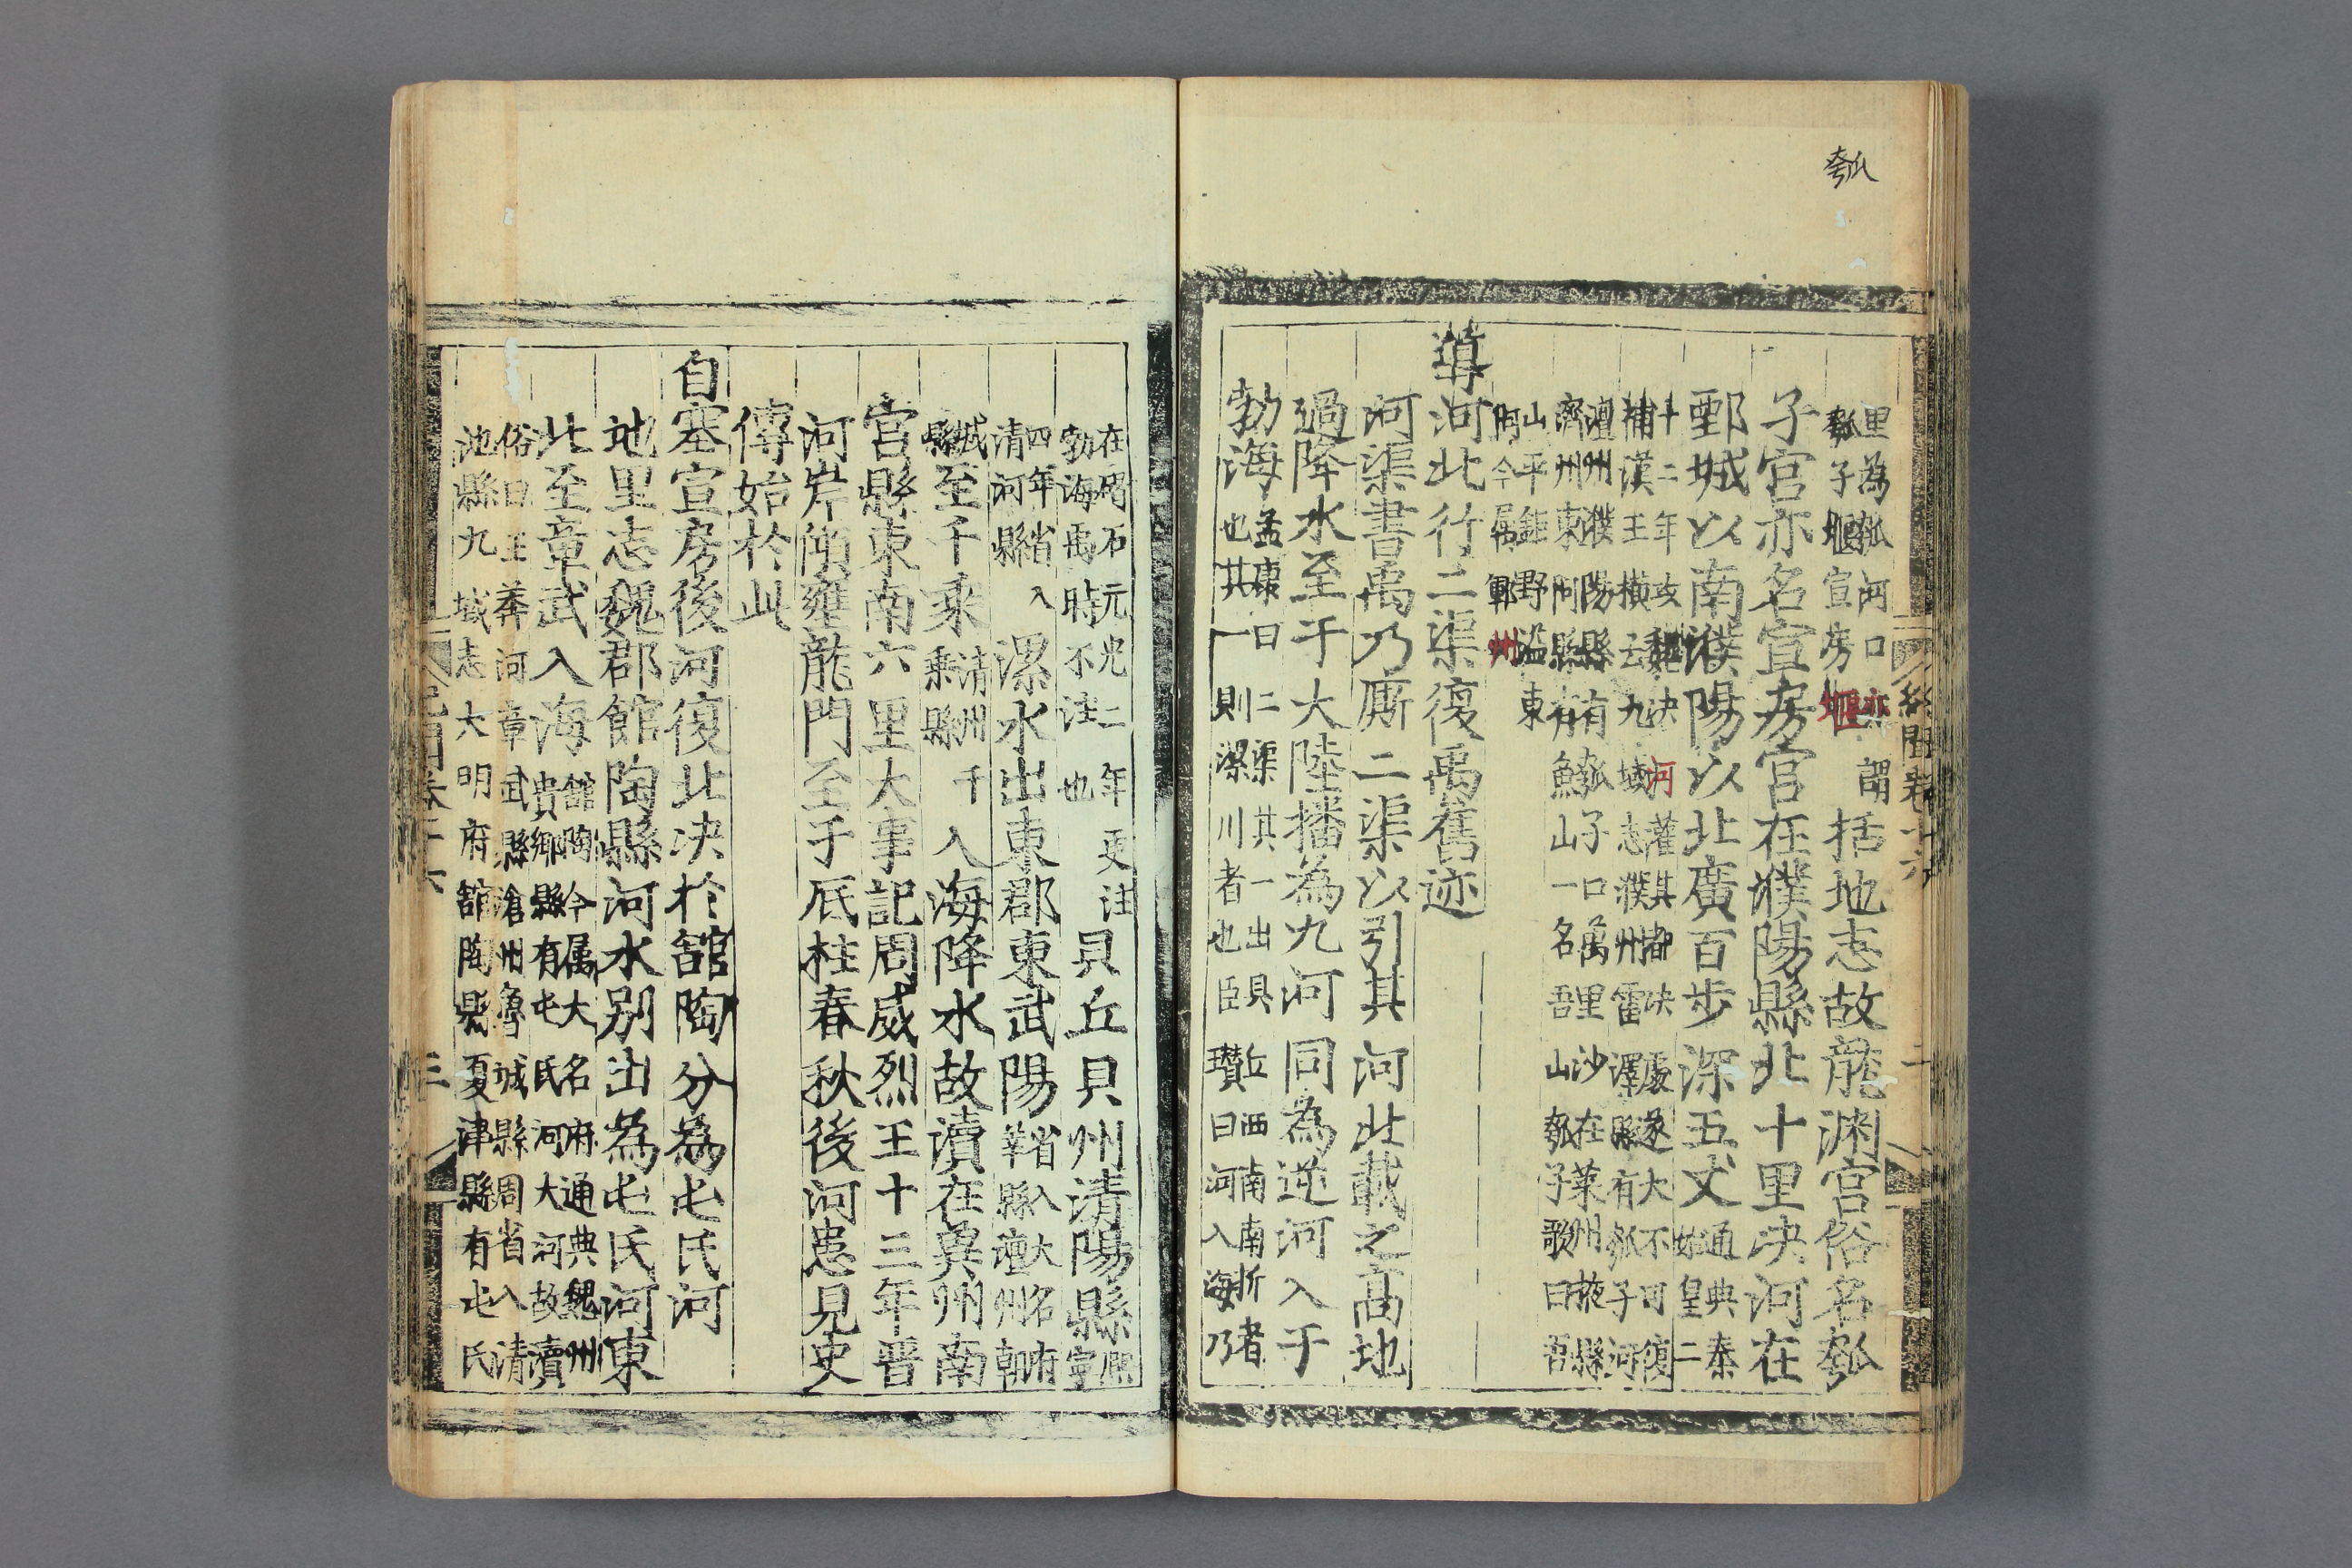 瓠
里為瓠河口亦謂
瓠子堰宣房堰
括地志故龍淵宮俗名瓠
子宮亦名宣房宮在濮陽縣北十里決河在
鄄城以南濮陽以北廣百步深五丈
通典秦
始皇二
十二年攻魏決河灌其都決處遂大不可復
補漢王橫云九域志濮州雷澤縣有瓠子河
澶州濮陽縣有瓠子口萬里沙在萊州掖縣
濟州東阿縣有魚山一名吾山瓠子歌曰吾
山平鉅野溢東
阿今屬鄆州
導河北行二渠復禹舊迹
河渠書禹乃厮二渠以引其河北載之高地
過降水至于大陸播為九河同為逆河入于
勃海
孟康曰二渠其一出貝丘西南南折者
也其一則漯川者也臣瓚曰河入海乃
在碣石元光二年更注
勃海禹時不注也
貝丘貝州清陽縣
熙
寧
四年省入
清河縣
漯水出東郡東武陽
省入大名府
莘縣澶州朝
城
縣
至千乘
清州千
乘縣
入海降水故瀆在冀州南
宮縣東南六里大事記周威烈王十三年晉
河岸傾壅龍門至于厎柱春秋後河患見史
傳始於此
自塞宣房後河復北決於舘陶分為屯氏河
地里志魏郡館陶縣河水别出為屯氏河東
北至章武入海
舘陶今屬大名府通典魏州
貴鄉縣有屯氏河大河故瀆
俗曰王莽河章武縣滄州魯城縣周省入清
池縣九域志大明府舘陶縣夏津縣有屯氏
三